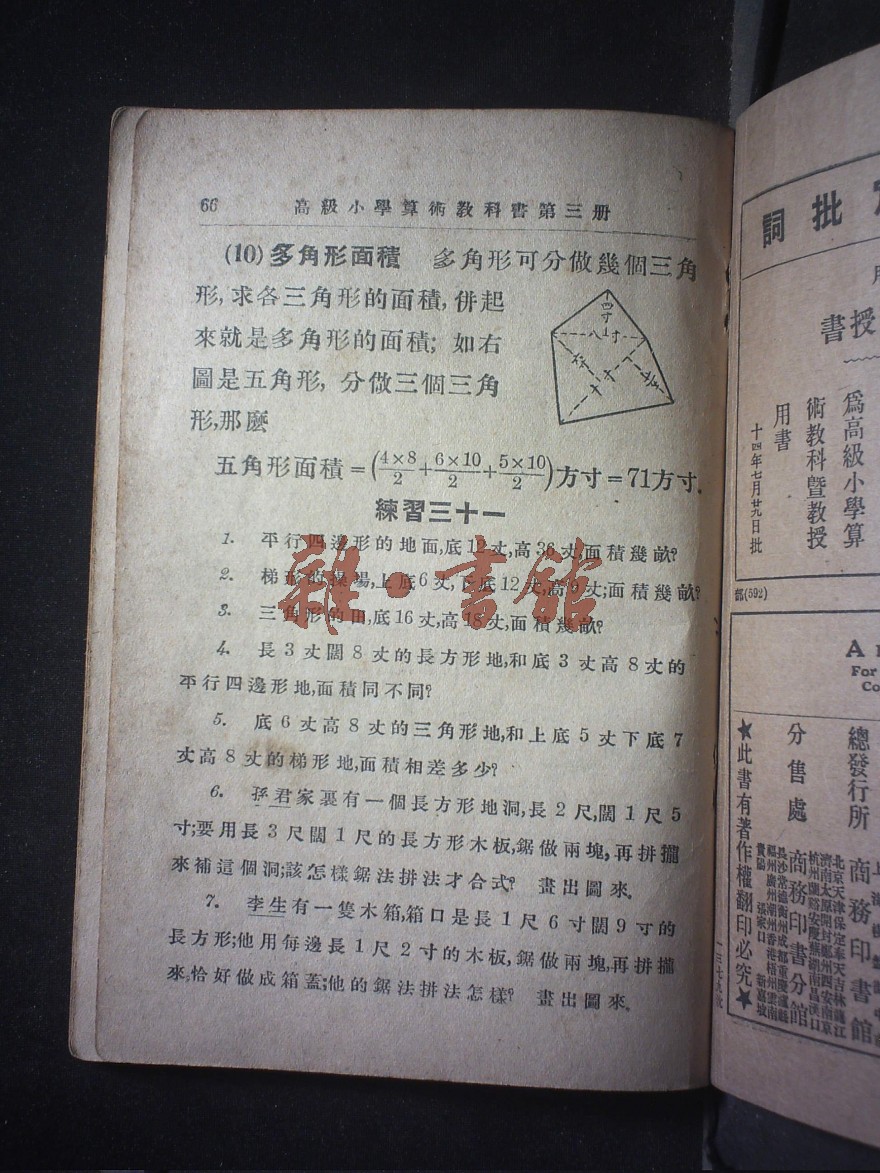 66 高級小學算術教科書第三册
(10) 多角形面積 多角形可分做幾個三角
形,求各三角形的面積,併起
來就是多角形的面積; 如右
圖是五角形, 分做三個三角
形,那麽
四寸
八寸
十寸
五角形面積=(4×8/2+6×10/2+5×10/2)方寸=71方寸.
練習三十一
1. 平行四邊形的地面,底12丈,高36丈,面積幾畝?
2. 梯形的操場,上底6丈,下底12丈,高9丈;面積幾畝?
3. 三角形的田,底16丈,高18丈,面積幾畝?
4. 長3丈闊8丈的長方形地,和底3丈高8丈的
平行四邊形地,面積同不同?
5. 底6丈高8丈的三角形地,和上底5丈下底7
丈高8丈的梯形地,面積相差多少?
6. 孫君家裏有一個長方形地洞,長2尺,闊1尺5
寸;要用長3尺闊1尺的長方形木板,鋸做兩塊,再拼攏
來補這個洞;該怎樣鋸法拼法才合式? 畫出圖來.
7. 李生有一隻木箱,箱口是長1尺6寸闊9寸的
長方形;他用每邊長1尺2寸的木板,鋸做兩塊,再拼攏
來,恰好做成箱蓋;他的鋸法拼法怎樣? 畫出圖來.
雜·書館
批詞
授書
爲高級小學算
術教科曁教授
用書
十四年七月廿九日批
部(592)
A
For
Co
總發行所
商務印書館
分售處
商務印書分館
★此書有著作權翻印必究★